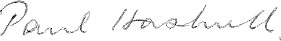 Paul Haskell